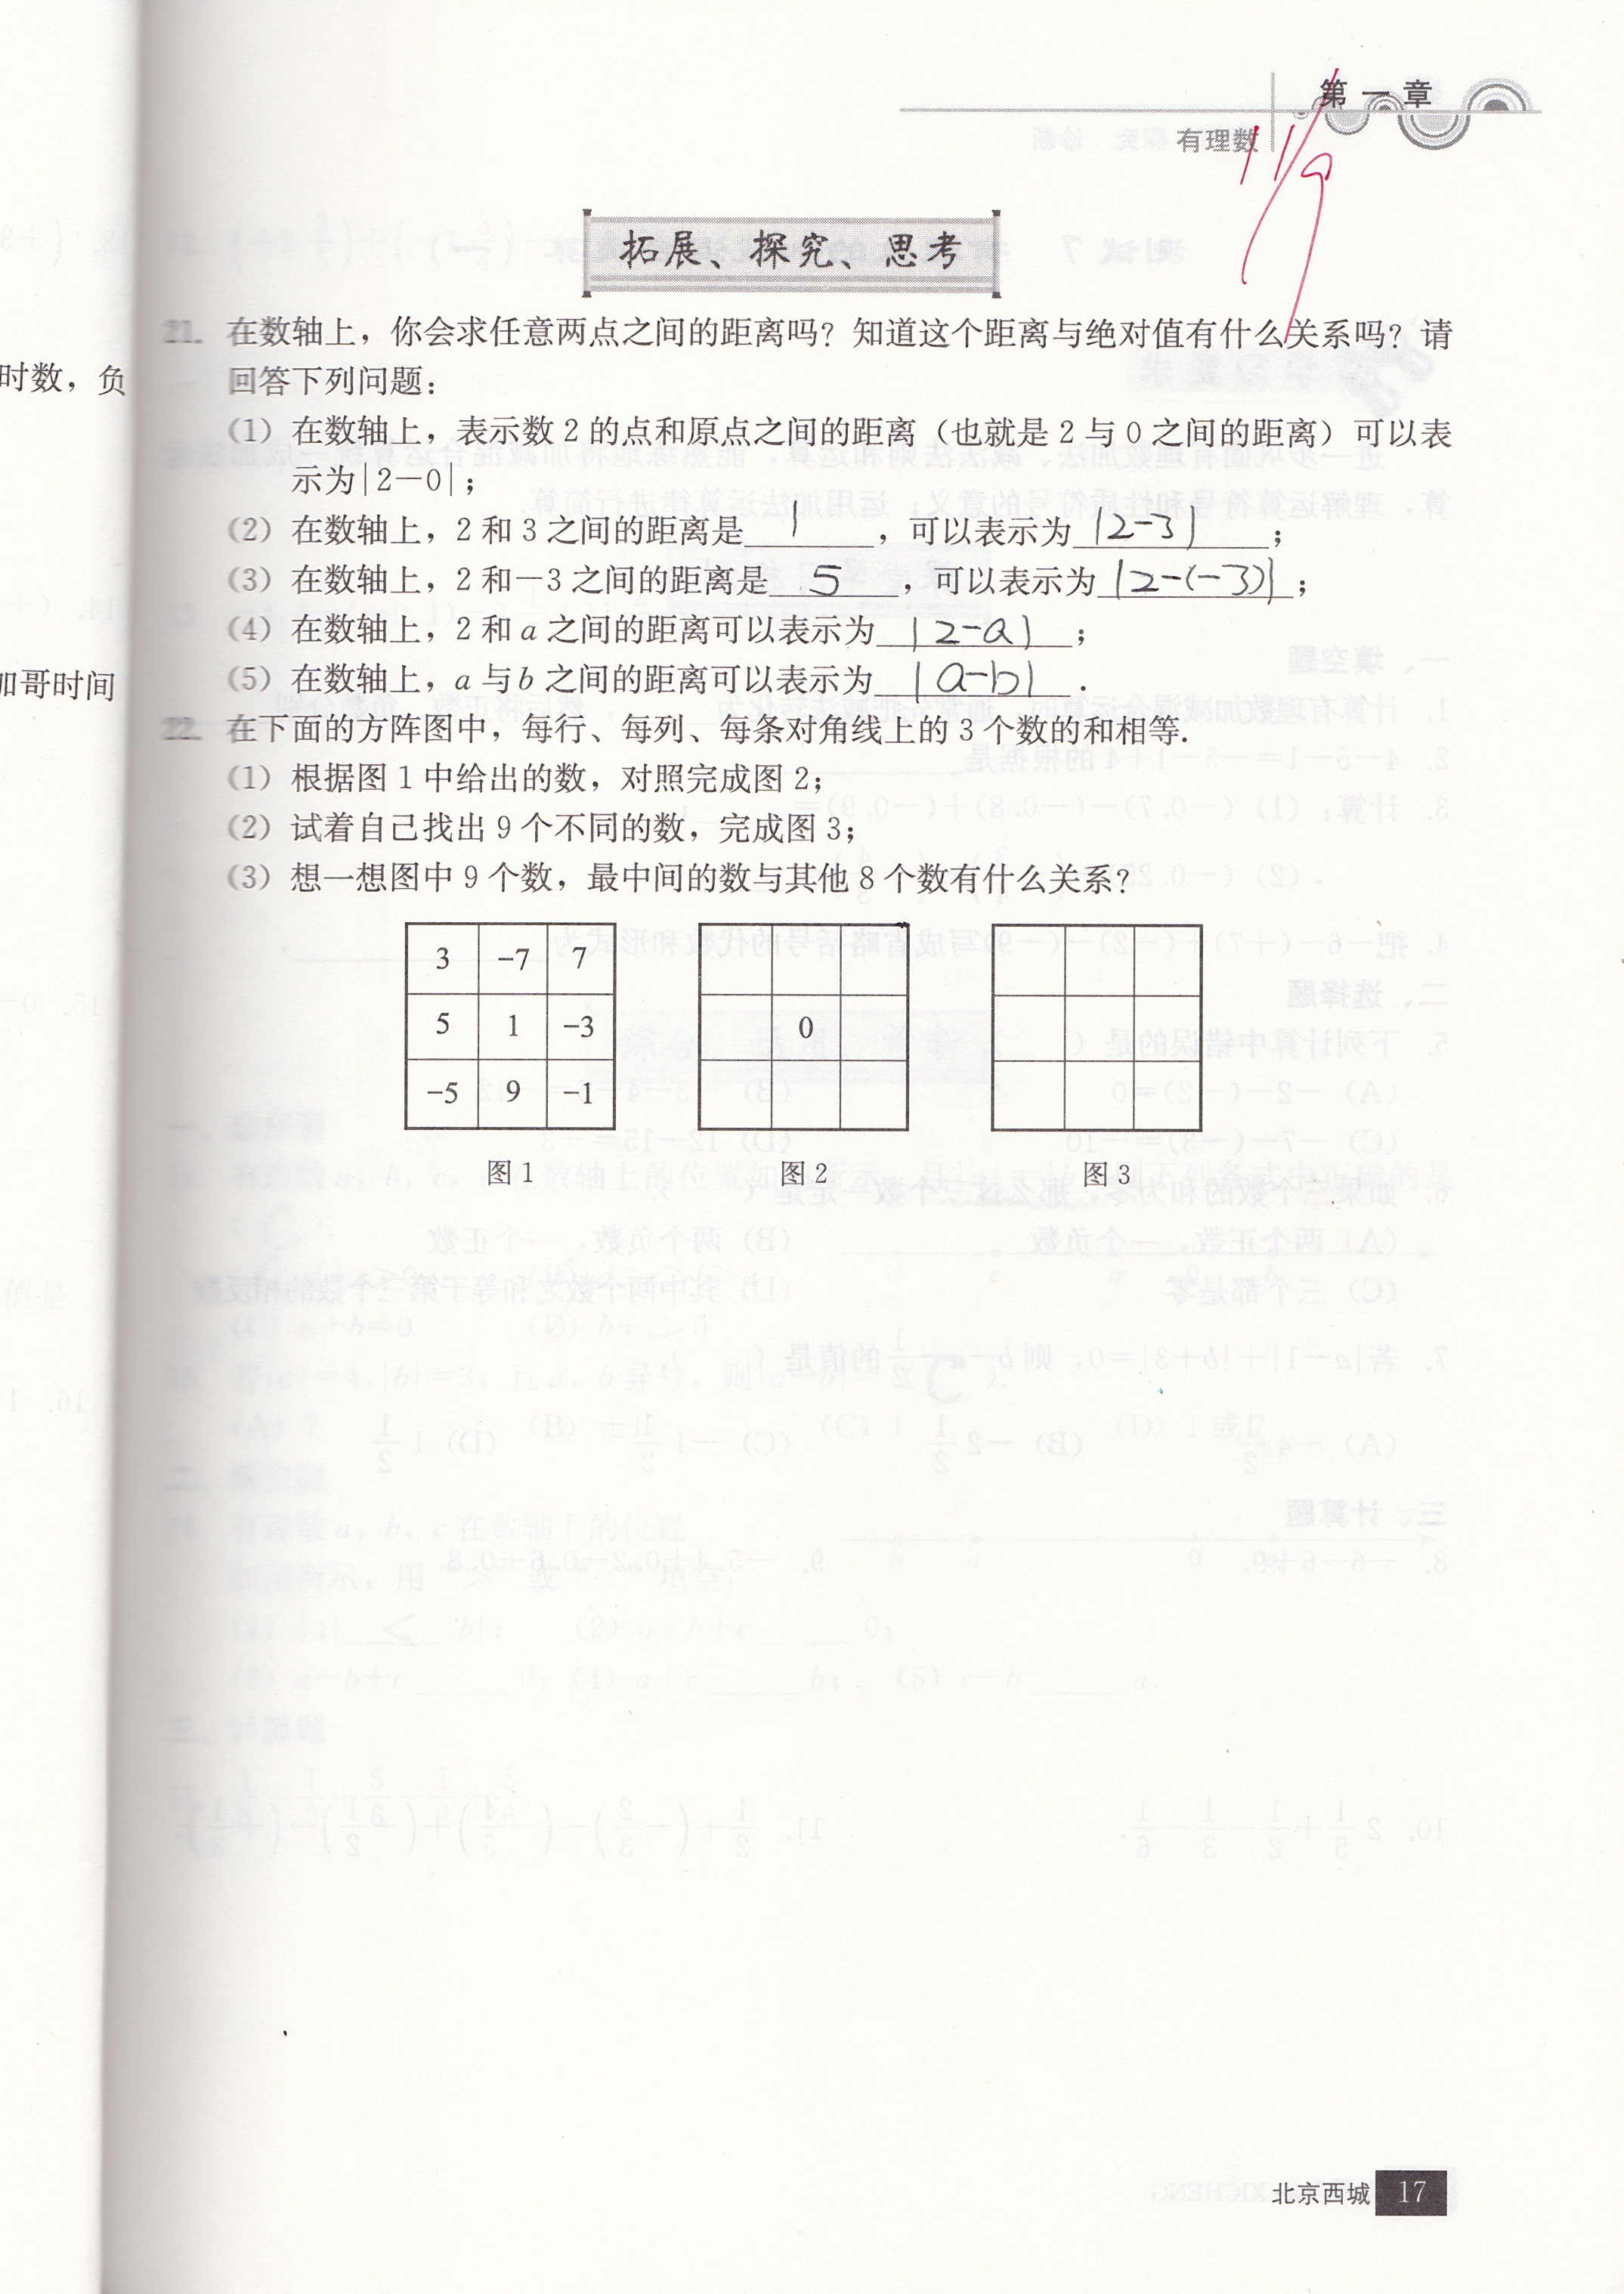 第一章
有理数
11/9
拓展、探究、思考
21. 在数轴上，你会求任意两点之间的距离吗？知道这个距离与绝对值有什么关系吗？请
时数，负
回答下列问题：
(1) 在数轴上，表示数2的点和原点之间的距离（也就是2与0之间的距离）可以表
示为|2－0|；
(2) 在数轴上，2和3之间的距离是 1 ，可以表示为 |2-3| ；
(3) 在数轴上，2和－3之间的距离是 5 ，可以表示为 |2-(-3)| ；
(4) 在数轴上，2和a之间的距离可以表示为 |2-a| ；
加哥时间
(5) 在数轴上，a与b之间的距离可以表示为 |a-b| .
22. 在下面的方阵图中，每行、每列、每条对角线上的3个数的和相等.
(1) 根据图1中给出的数，对照完成图2；
(2) 试着自己找出9个不同的数，完成图3；
(3) 想一想图中9个数，最中间的数与其他8个数有什么关系？
3 -7 7
5 1 -3 0
-5 9 -1
图1 图2 图3
北京西城 17